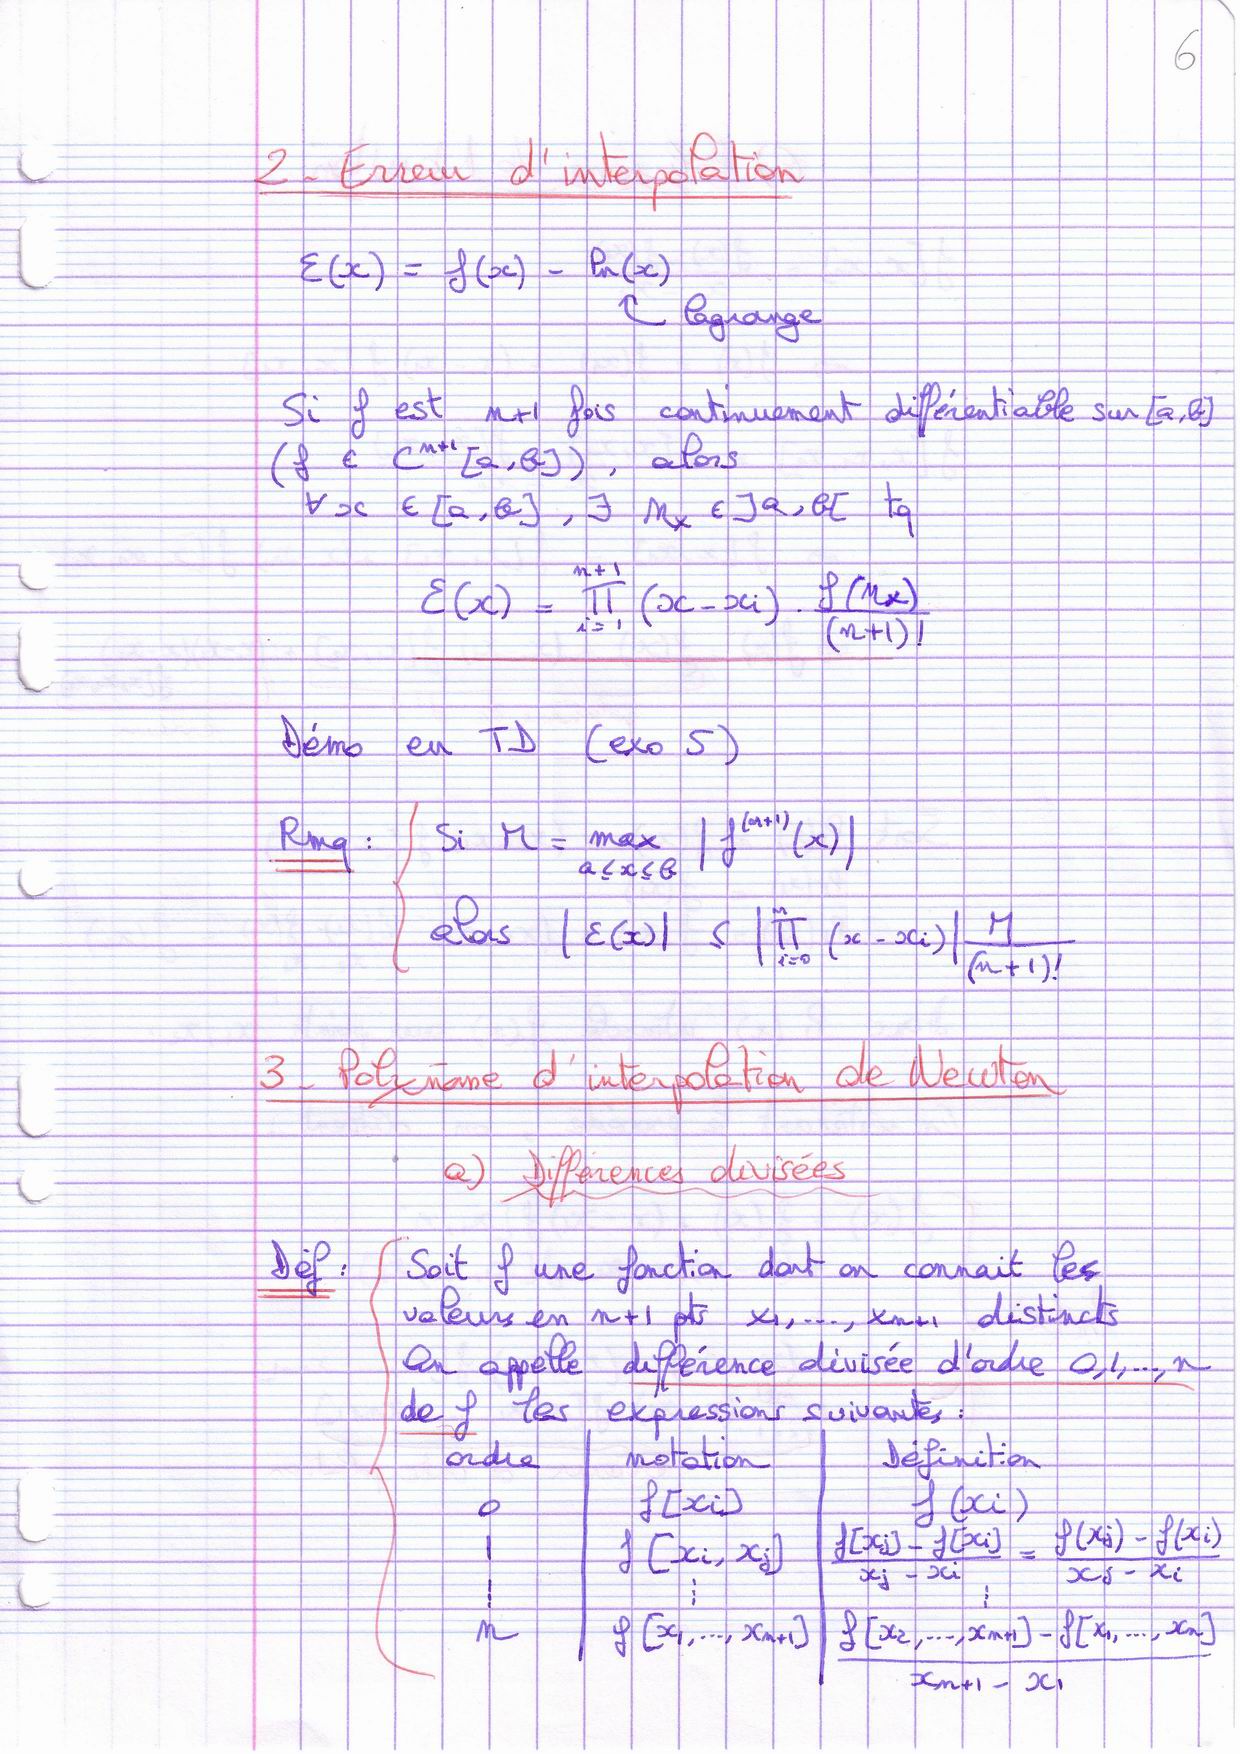 6
2 - Erreur d'interpolation
ε(x) = f(x) - Pn(x)
lagrange
Si f est n+1 fois continuement différentiable sur [a,b]
(f ∈ C^{n+1} [a,b]), alors
∀ x ∈ [a,b], ∃ η_x ∈ ]a,b[ tq
ε(x) = ∏_{i=1}^{n+1} (x - xi) . f(η_x) / (n+1)!
Démo en TD (exo 5)
Rmq : Si M = max_{a≤x≤b} |f^{(n+1)}(x)|
alors |ε(x)| ≤ |∏_{i=0}^{n} (x - xi)| M / (n+1)!
3 - Polynôme d'interpolation de Newton
a) Différences divisées
Déf : Soit f une fonction dont on connait les
valeurs en n+1 pts x1, ..., xn+1 distincts
On appelle différence divisée d'ordre 0,1,...,n
de f les expressions suivantes :
ordre | notation | Définition
0 | f[xi] | f(xi)
1 | f[xi, xj] | (f[xj] - f[xi]) / (xj - xi) = (f(xj) - f(xi)) / (xj - xi)
⋮ ⋮ ⋮
n | f[x1, ..., xn+1] | (f[x2, ..., xn+1] - f[x1, ..., xn]) / (xn+1 - x1)